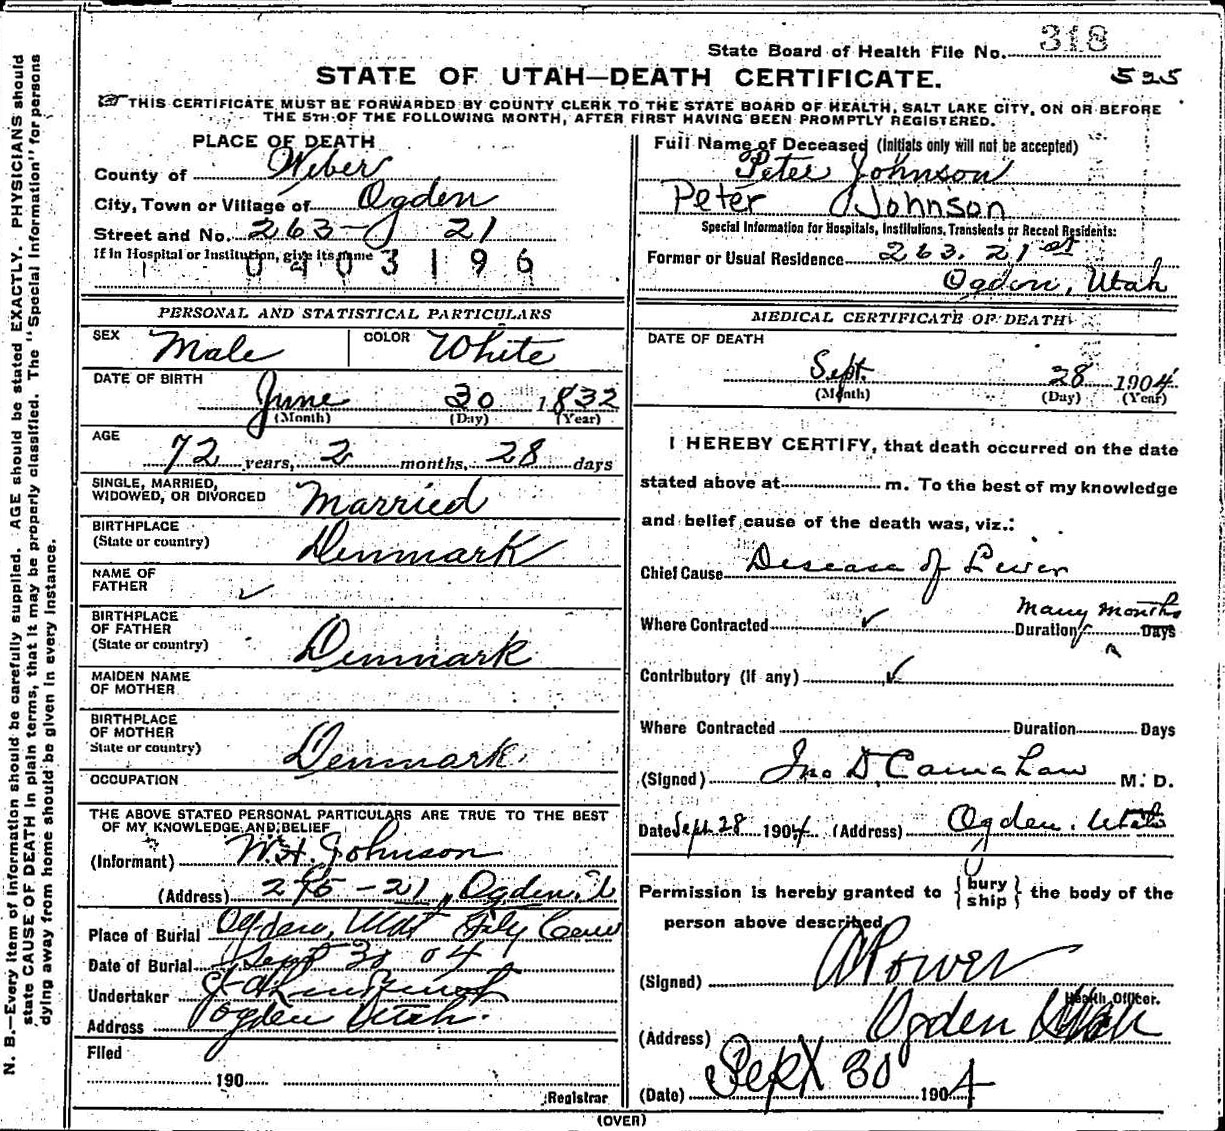 State Board of Health File No. 318
STATE OF UTAH—DEATH CERTIFICATE.
525
THIS CERTIFICATE MUST BE FORWARDED BY COUNTY CLERK TO THE STATE BOARD OF HEALTH, SALT LAKE CITY, ON OR BEFORE
THE 5TH OF THE FOLLOWING MONTH, AFTER FIRST HAVING BEEN PROMPTLY REGISTERED.
PLACE OF DEATH
County of Weber
City, Town or Village of Ogden
Street and No. 263- 21
If in Hospital or Institution, give its name
0403196
PERSONAL AND STATISTICAL PARTICULARS
SEX Male COLOR White
DATE OF BIRTH
June 30 1832
(Month) (Day) (Year)
AGE
72 years, 2 months, 28 days
SINGLE, MARRIED,
WIDOWED, OR DIVORCED Married
BIRTHPLACE
(State or country) Denmark
NAME OF
FATHER ✓
BIRTHPLACE
OF FATHER
(State or country) Denmark
MAIDEN NAME
OF MOTHER
BIRTHPLACE
OF MOTHER
State or country) Denmark
OCCUPATION
THE ABOVE STATED PERSONAL PARTICULARS ARE TRUE TO THE BEST
OF MY KNOWLEDGE AND BELIEF
(Informant) W.H. Johnson
(Address) - 21, Ogden, U
Place of Burial Ogden, Utah City Cem
Date of Burial Sept 30 04
Undertaker
Address Ogden Utah.
Filed
190
Registrar
Full Name of Deceased (Initials only will not be accepted)
Peter Johnson
Peter Johnson
Special Information for Hospitals, Institutions, Transients or Recent Residents:
Former or Usual Residence 263. 21st
Ogden, Utah
MEDICAL CERTIFICATE OF DEATH
DATE OF DEATH
Sept. 28 1904
(Month) (Day) (Year)
I HEREBY CERTIFY, that death occurred on the date
stated above at m. To the best of my knowledge
and belief cause of the death was, viz.:
Chief Cause Desease of Liver
many months
Where Contracted ✓ Duration Days
Contributory (If any) ✓
Where Contracted Duration Days
(Signed) Jno D. Carnahan M. D.
Date Sept 28 1904 (Address) Ogden. Utah
Permission is hereby granted to {bury ship} the body of the
person above described
(Signed) A Power
Health Officer.
(Address) Ogden Utah
(Date) Sept 30 1904
(OVER)
N. B.—Every item of information should be carefully supplied. AGE should be stated EXACTLY. PHYSICIANS should
state CAUSE OF DEATH in plain terms, that it may be properly classified. The "Special Information" for persons
dying away from home should be given in every instance.